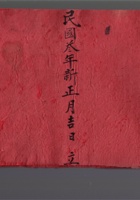 民國叁年新正月吉日 立